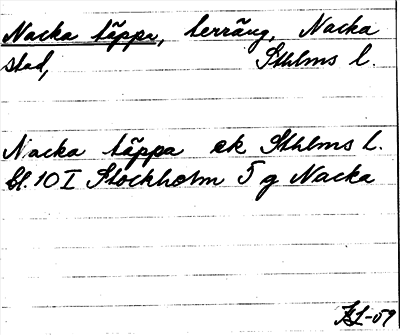 Nacka täppa, terräng, Nacka
stad, Sthlms l.
Nacka täppa ek Sthlms l.
bl. 10 I Stockholm 5 g Nacka